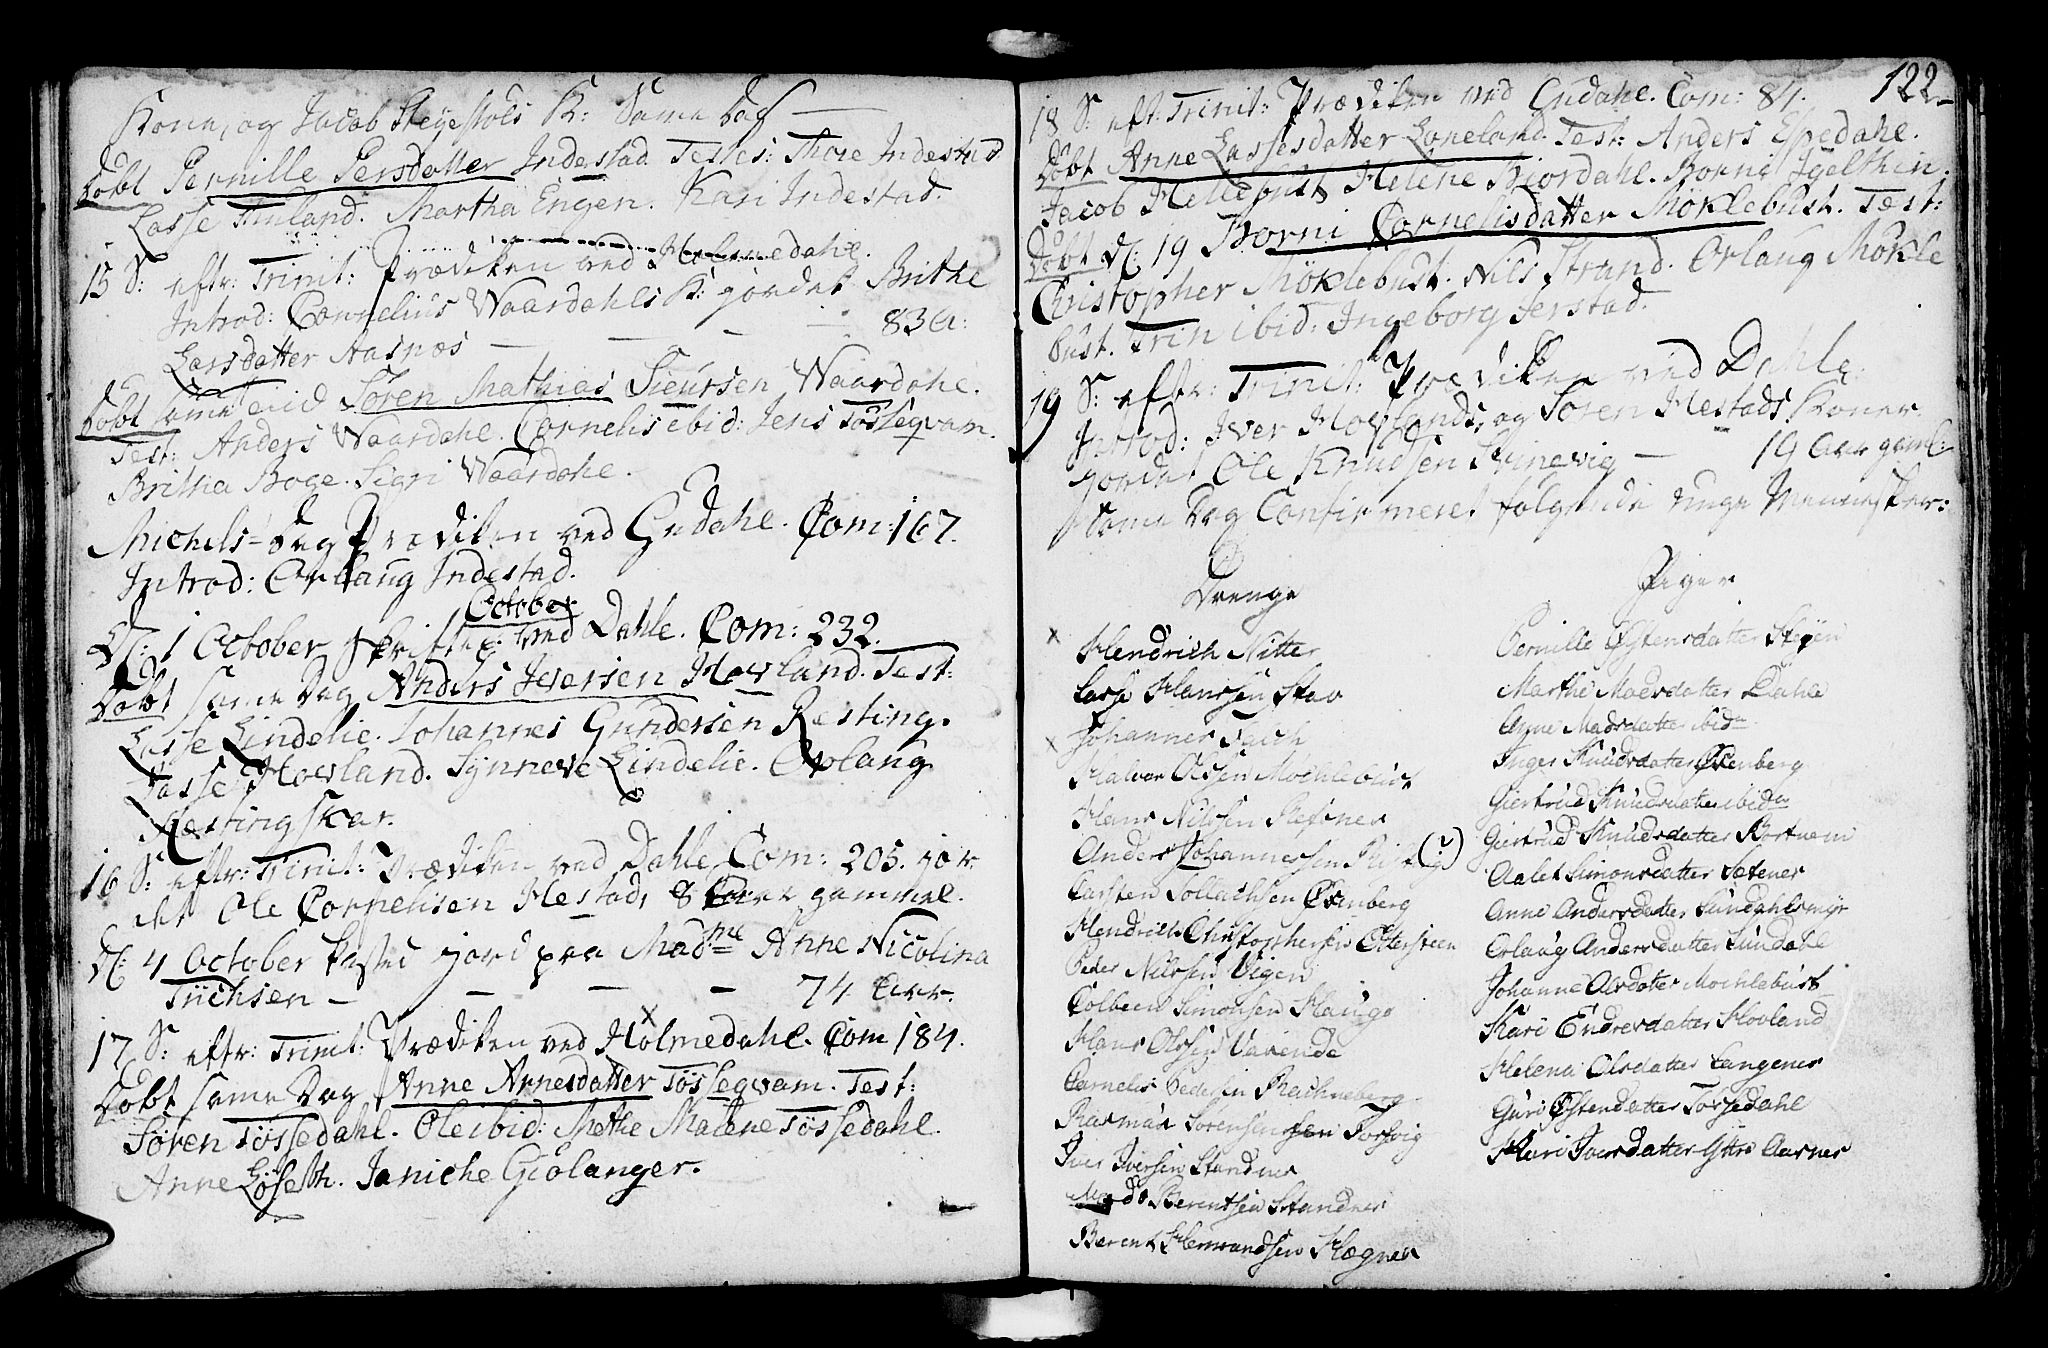 Kone, og Jacob Steyestöls K: Same Dag —
Döbt Pernille Persdatter Indestad Testes: Thore Indestad
Lasse Tinland. Martha Engen. Kari Indestad.
15 S: eftr: Trinit: Prædiken ved Holmedahl.
Introd: Cornelius Waardahls K: jordet Brithe
Larsdatter Aasnæs — — — 83 a:
Döbt same Sören Mathias Sieursen Waardahl.
Test: Anders Waardahl. Cornelis ibid: Jens Tösseqvam.
Britha Boge. Sigri Waardahl.
Michels-Dag Prædiken ved Gudahl. Com: 167.
Introd: Orlaug Indestad.
October
D: 1 October Skriftes ved Dahle. Com: 232.
Döbt same Dag Anders Iversen Hovland. Test:
Lasse Lindelie. Johannes Gundersen Resting.
Lasse Hovland. Synneve Lindelie. Orlaug
Restingskar.
16 S: eftr: Trinit: Prædiken ved Dahle Com: 205. jor
det Ole Cornelisen Hestad, 8 gammel.
D: 4 October kasted jord paa Madme Anne Nicolina
Tüchsen — — — — 74 Aar.
17 S: eftr: Trinit: Prædiken ved Holmedahl. Com 184.
Döbt same Dag Anne Arnesdatter Tösseqvam. Test:
Sören Tössedahl. Ole ibid: Methe Malene Tössedahl.
Anne Löseth. Janiche Giölanger.
122
18 S: eft: Trinit: Prædiken ved Gudahl. Com: 84.
Döbt Anne Lassesdatter Loneland. Test: Anders Espedahl.
Jacob Hellebust Helene Biordahl. Borni Igelthin.
Döbt D: 19 Borni Cornelisdatter Möklebust. Test:
Christopher Möklebust. Nils Strand. Orlaug Mökle
bust. Trin ibid: Ingeborg Jerstad.
19 S: eftr: Trinit: Prædiken ved Dahle:
Introd: Iver Hovlands, og Sören Hestads Koner
jordet Ole Knudsen Svinevig — 19 Aar gaml:
Same Dag Confirmeret fölgende unge Mennesker:
Drenge
x Hendrich Nitter
Lasse Hanssen Stav
x Johannes Falch
Halvor Olssen Mochlebust
Hans Nilssen Flefsnes
Anders Johannessen
Carsten Sollachsen Øxenberg
Hendrich Christophersen Ottersteen
Peder Nilssen Vigen
Colbeen Simonsen Hauge
Hans Olssen Varende
Cornelis Pedersen Rachneberg
Rasmus Sörensen Torsvig
Iver Iversen Standnes
Mads Berentsen Standnes
Berent Hermandsen Hægnes
Piger
Pernille Østensdatter Steyen
Marthe Madsdatter Dahle
Anne Madsdatter ibidm
Inger Knudsdatter Øxenberg
Giertrud Knudsdatter ibidm
Giertrud Knudsdatter Kortnem
Aalet Simonsdatter Sætenes
Anne Andersdatter Sundahlsmyr
Orlaug Andersdatter Sundahl
Johanne Olsdatter Mochlebust
Kari Endresdatter Hovland
Helena Olsdatter Langenes
Guri Østensdatter Torsedahl
Kari Iversdatter Ytre Aarnes